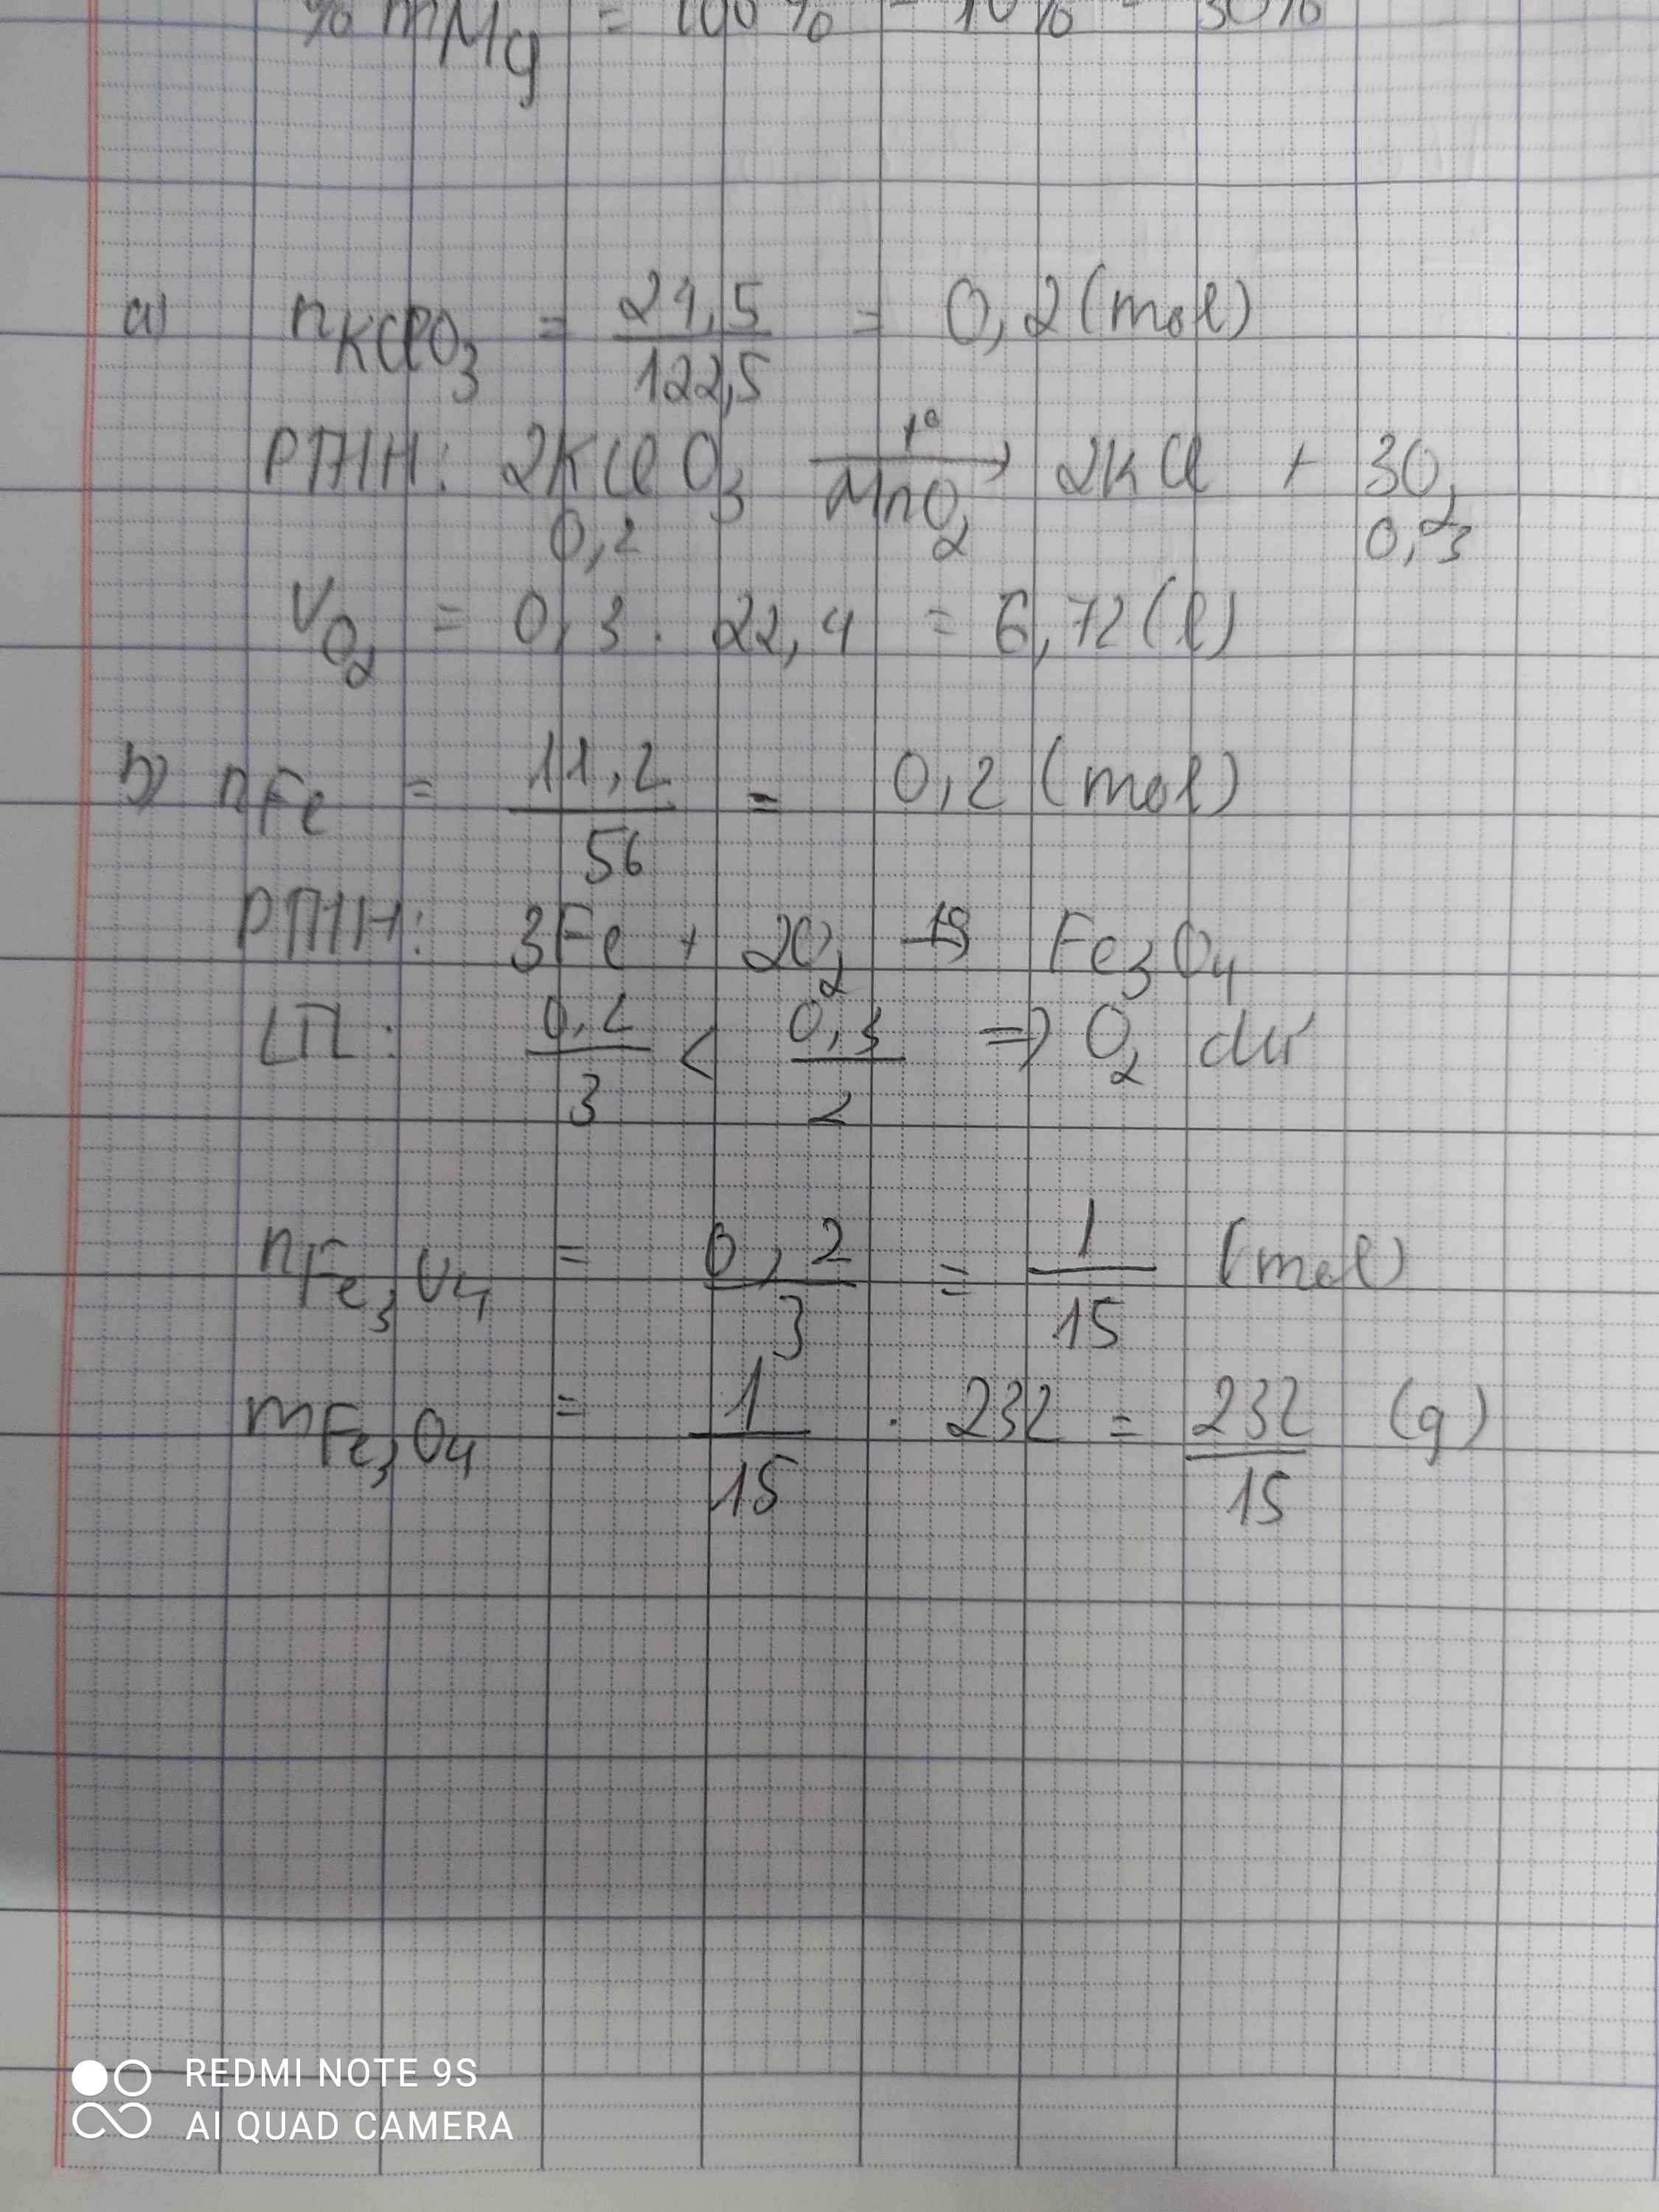 % mMg = 100% - 10% - 30%
a) nKClO3 = 24,5/122,5 = 0,2 (mol)
PTHH: 2KClO3 t°→ MnO2 2KCl + 3O2
0,2 0,3
VO2 = 0,3 . 22,4 = 6,72 (l)
b) nFe = 11,2/56 = 0,2 (mol)
PTHH: 3Fe + 2O2 t°→ Fe3O4
LTL: 0,2/3 < 0,3/2 => O2 dư
nFe3O4 = 0,2/3 = 1/15 (mol)
mFe3O4 = 1/15 . 232 = 232/15 (g)
REDMI NOTE 9S
AI QUAD CAMERA